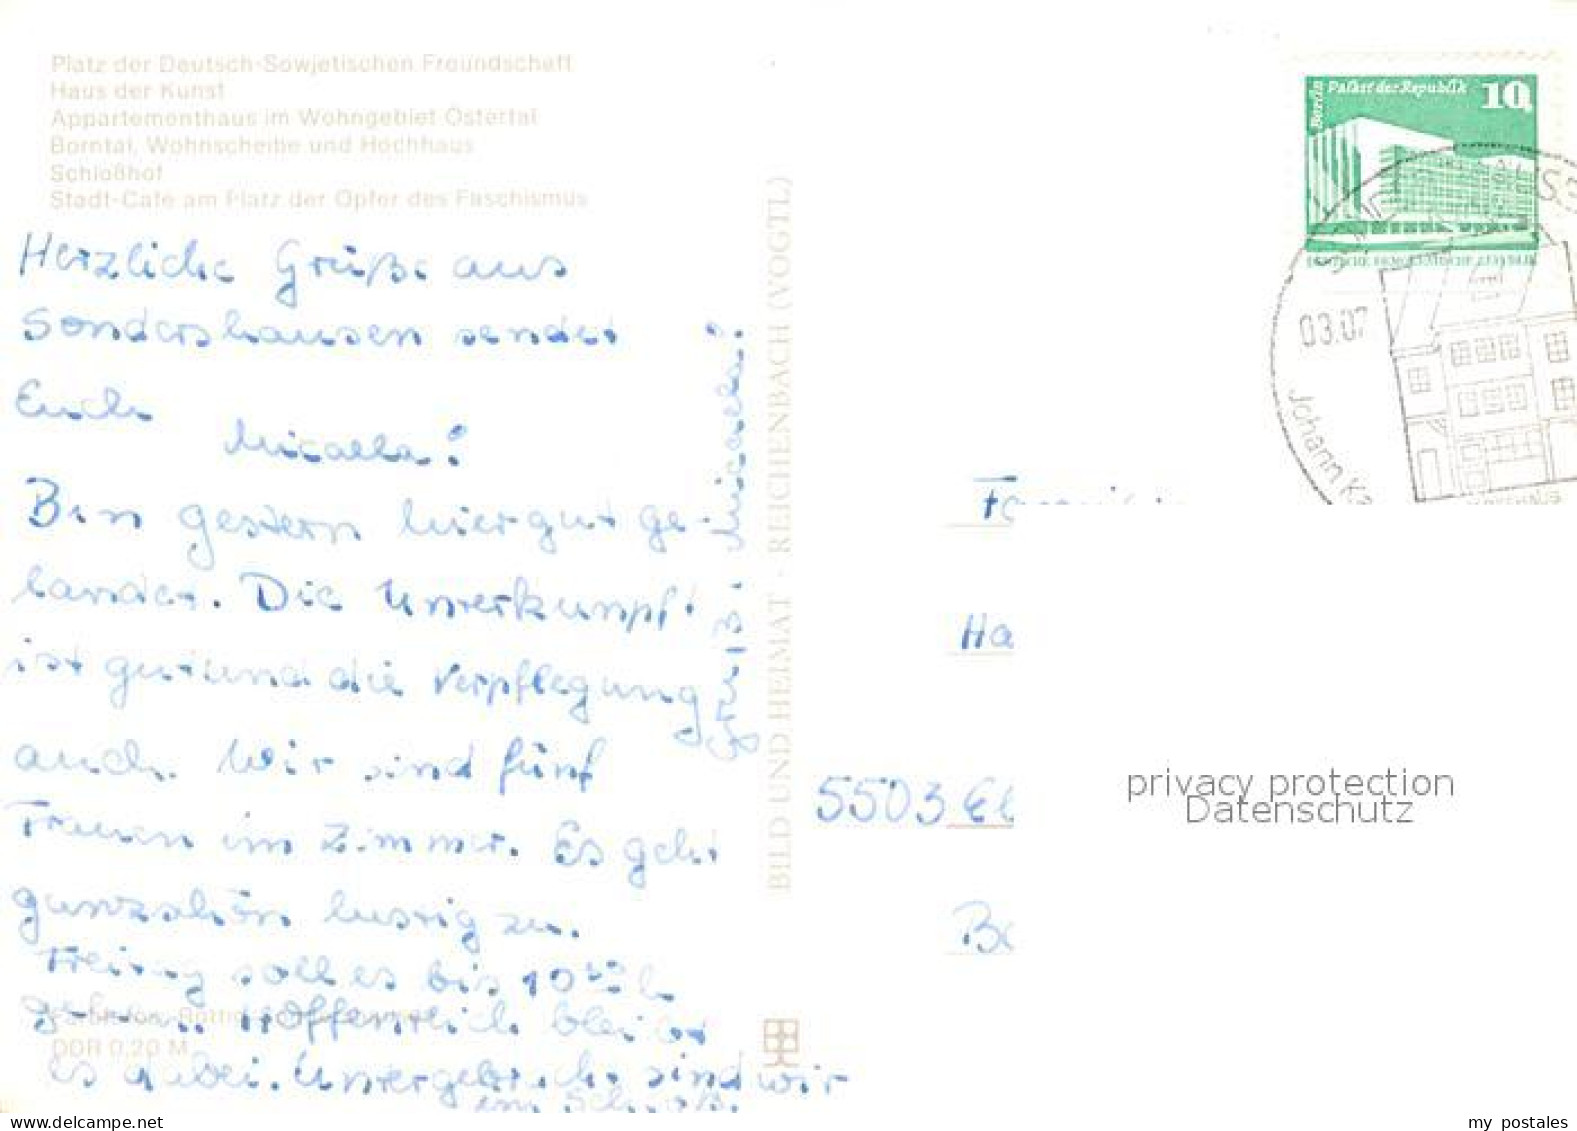 Platz der Deutsch-Sowjetischen Freundschaft
Haus der Kunst
Appartementhaus im Wohngebiet Östertal
Borntal, Wohnscheibe und Hochhaus
Schloßhof
Stadt-Café am Platz der Opfer des Faschismus
Herzliche Grüße aus
Sondershausen sendet
Euch
Micaela!
Bin gestern hier gut ge-
landet. Die Unterkunft
ist gut und die Verpflegung
auch. Wir sind fünf
Frauen im Zimmer. Es geht
ganz schön lustig zu.
Freitag soll es bis 10
Hoffentlich bleibt
es dabei. Untergebracht sind wir
im Schloß.
Michaela!
DDR 0,20 M
BILD UND HEIMAT · REICHENBACH (VOGTL)
Berlin Palast der Republik 10
03.07
Johann Ka
Ha
5503
privacy protection
Datenschutz
www.delcampe.net
my_postales